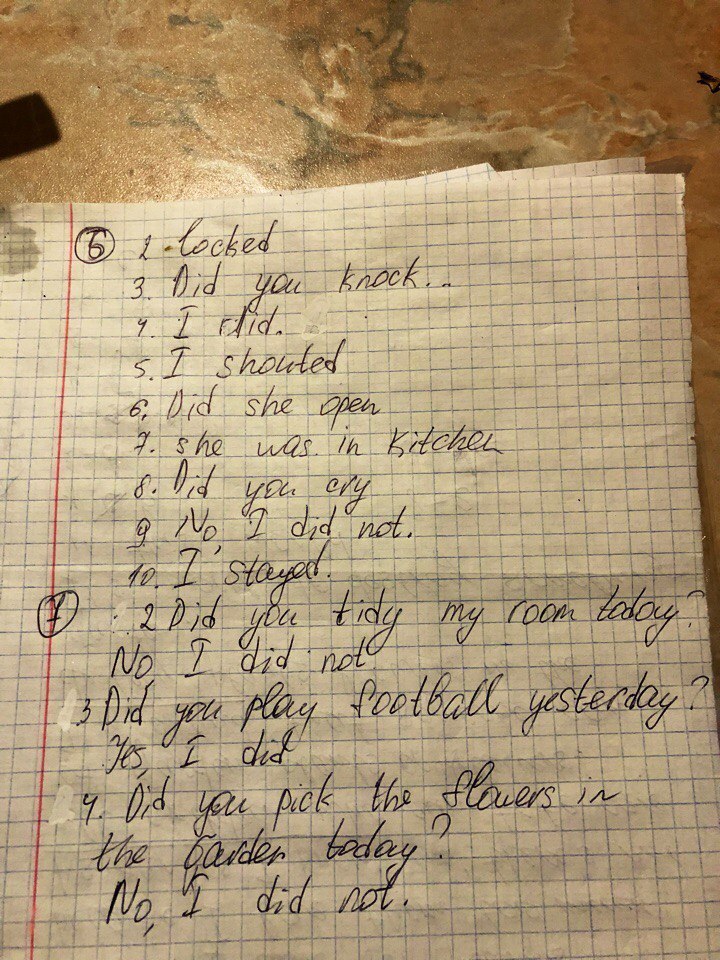 6 2 locked
3. Did you knock...
4. I did.
5. I shouted
6. Did she open
7. she was in kitchen
8. Did you cry
9 No, I did not.
10. I stayed.
7 2 Did you tidy my room today?
No, I did not
3 Did you play football yesterday?
Yes, I did
4. Did you pick the flowers in
the garden today?
No, I did not.